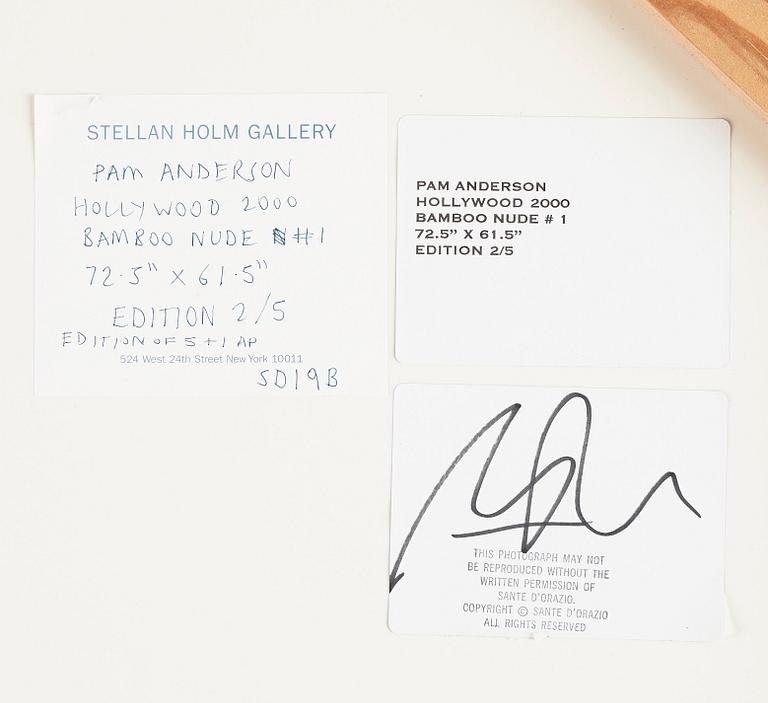 STELLAN HOLM GALLERY
PAM ANDERSON
HOLLYWOOD 2000
BAMBOO NUDE #1
72.5" X 61.5"
EDITION 2/5
EDITION OF 5 + 1 AP
524 West 24th Street New York 10011
SD19B
PAM ANDERSON
HOLLYWOOD 2000
BAMBOO NUDE # 1
72.5” X 61.5”
EDITION 2/5
THIS PHOTOGRAPH MAY NOT
BE REPRODUCED WITHOUT THE
WRITTEN PERMISSION OF
SANTE D'ORAZIO.
COPYRIGHT © SANTE D'ORAZIO
ALL RIGHTS RESERVED